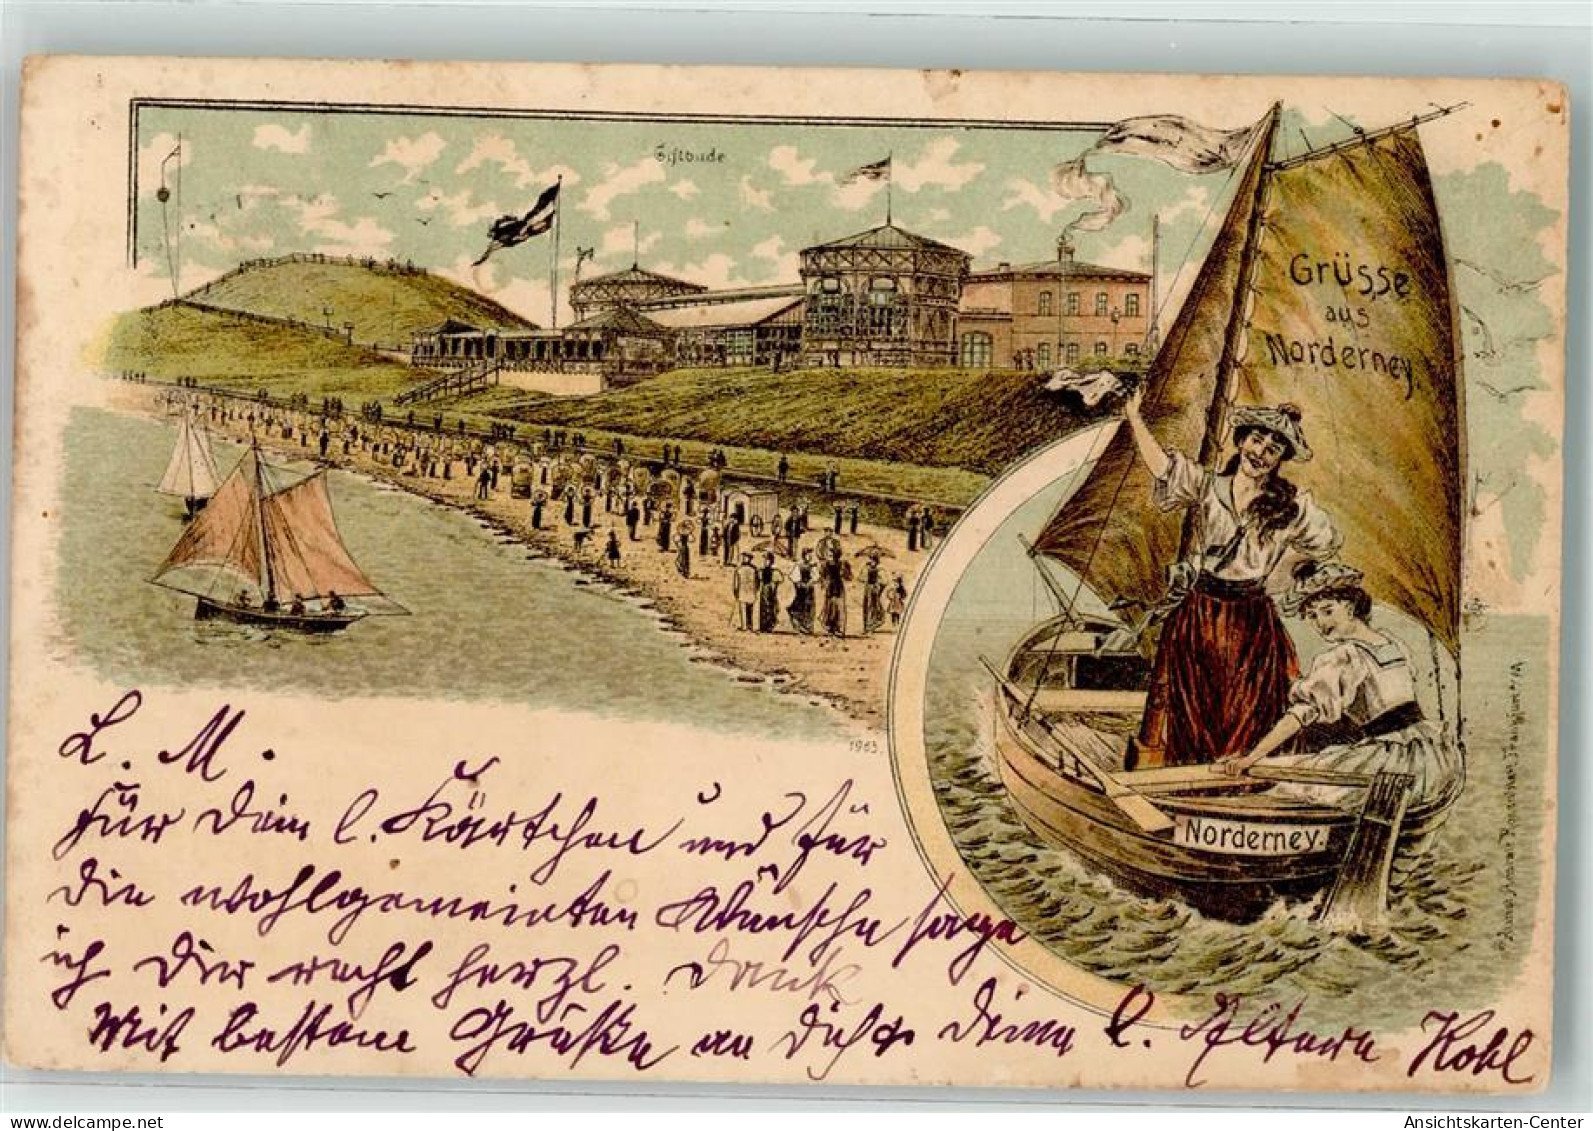 Giftbude
Grüsse
aus
Norderney.
Norderney.
1963.
L. M.
Für Dein l. Kärtchen und für
die wohlgemeinten Wünsche sage
ich Dir recht herzl. Dank
Mit besten Grüßen an Dich & Deine l. Eltern Kohl
Ansichtskarten-Center